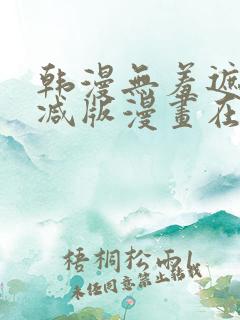 韩漫無羞遮
减版漫畫在
梧桐松雨l
未经同意禁止转载